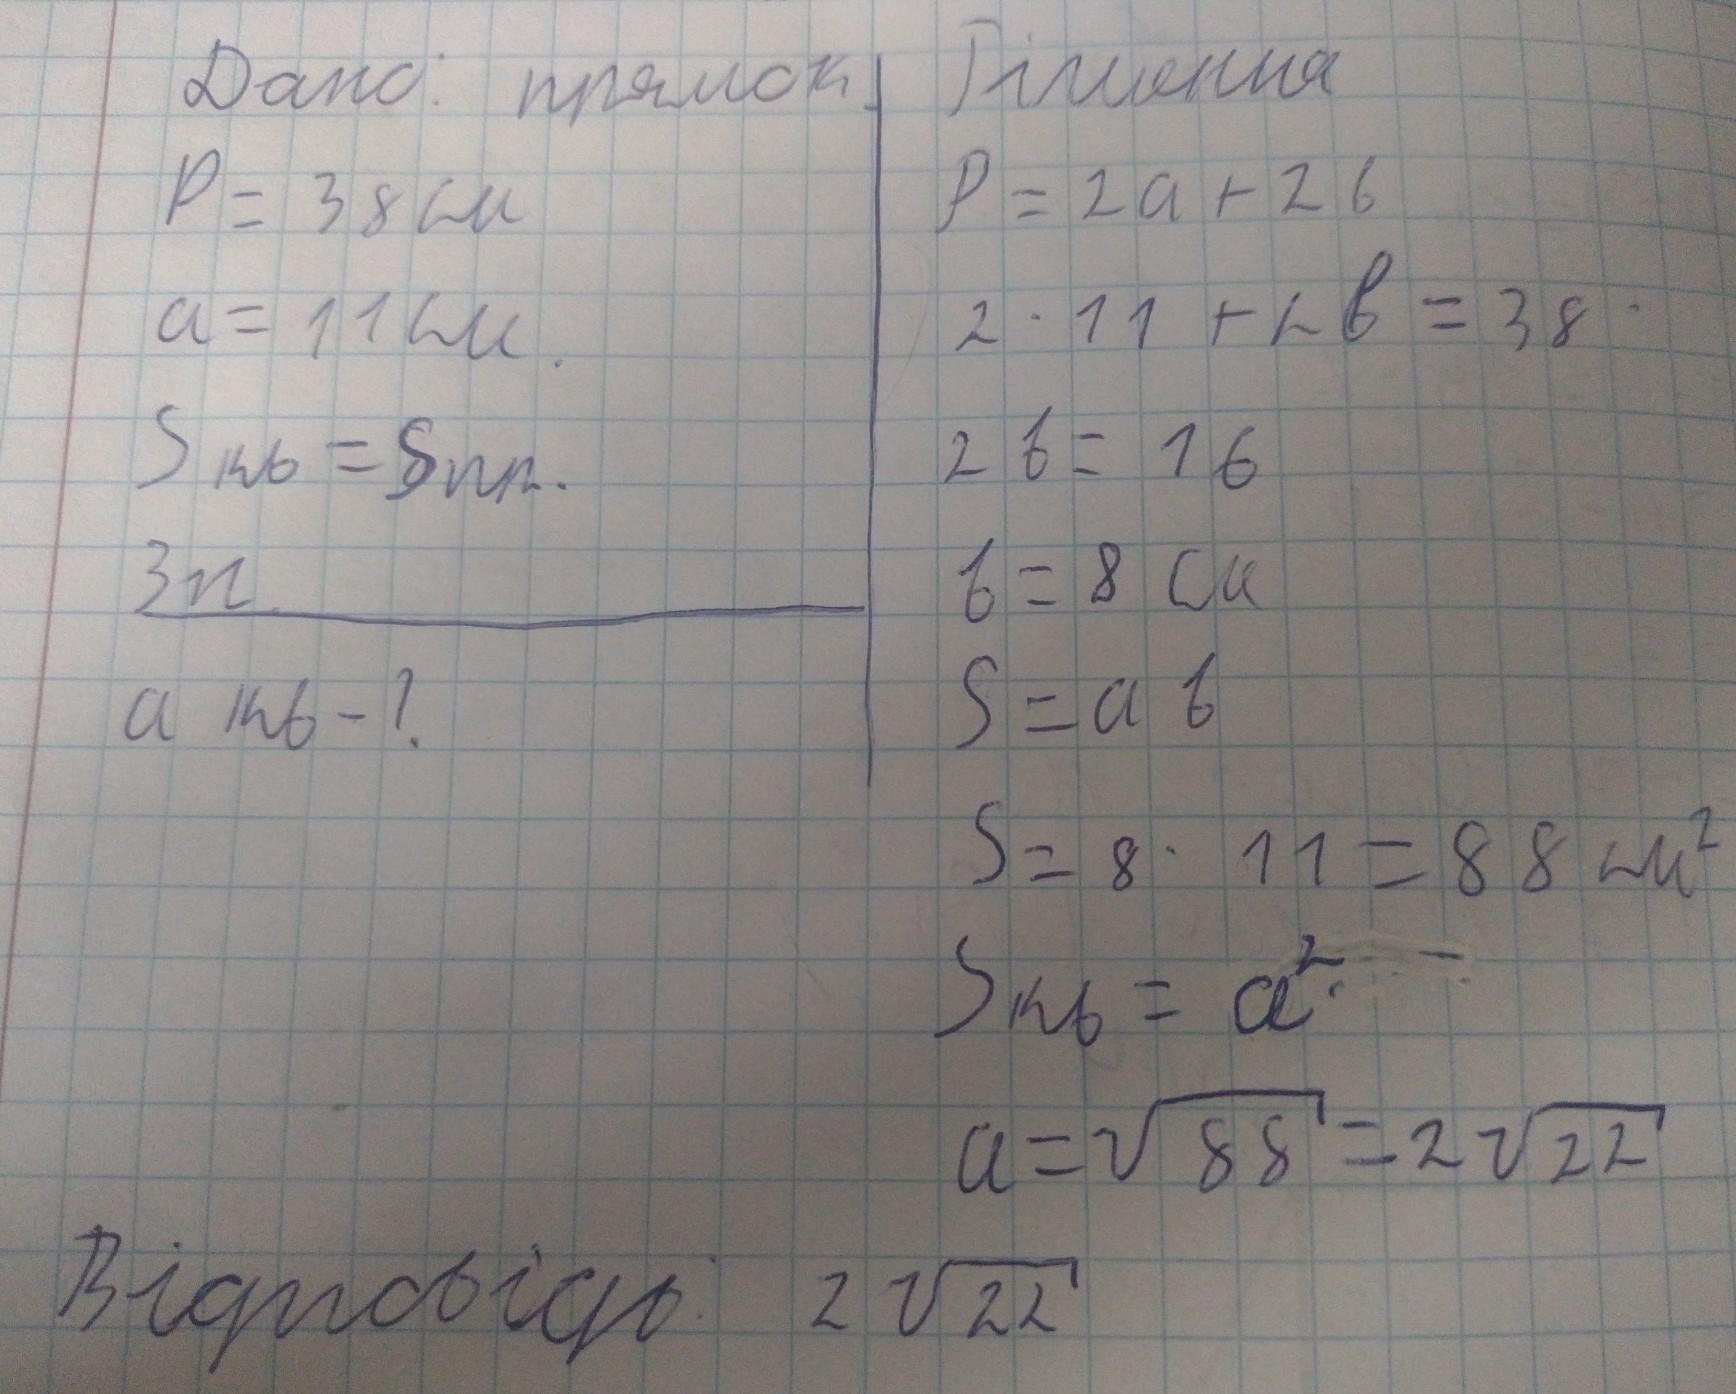 Дано: прямок.
P = 38 см
a = 11 см.
Sкв = Sпр.
Зн
a кв - ?
Рішення
P = 2a + 2b
2 · 11 + 2b = 38
2b = 16
b = 8 см
S = a b
S = 8 · 11 = 88 см²
Sкв = a²
a = √88 = 2√22
Відповідь: 2√22